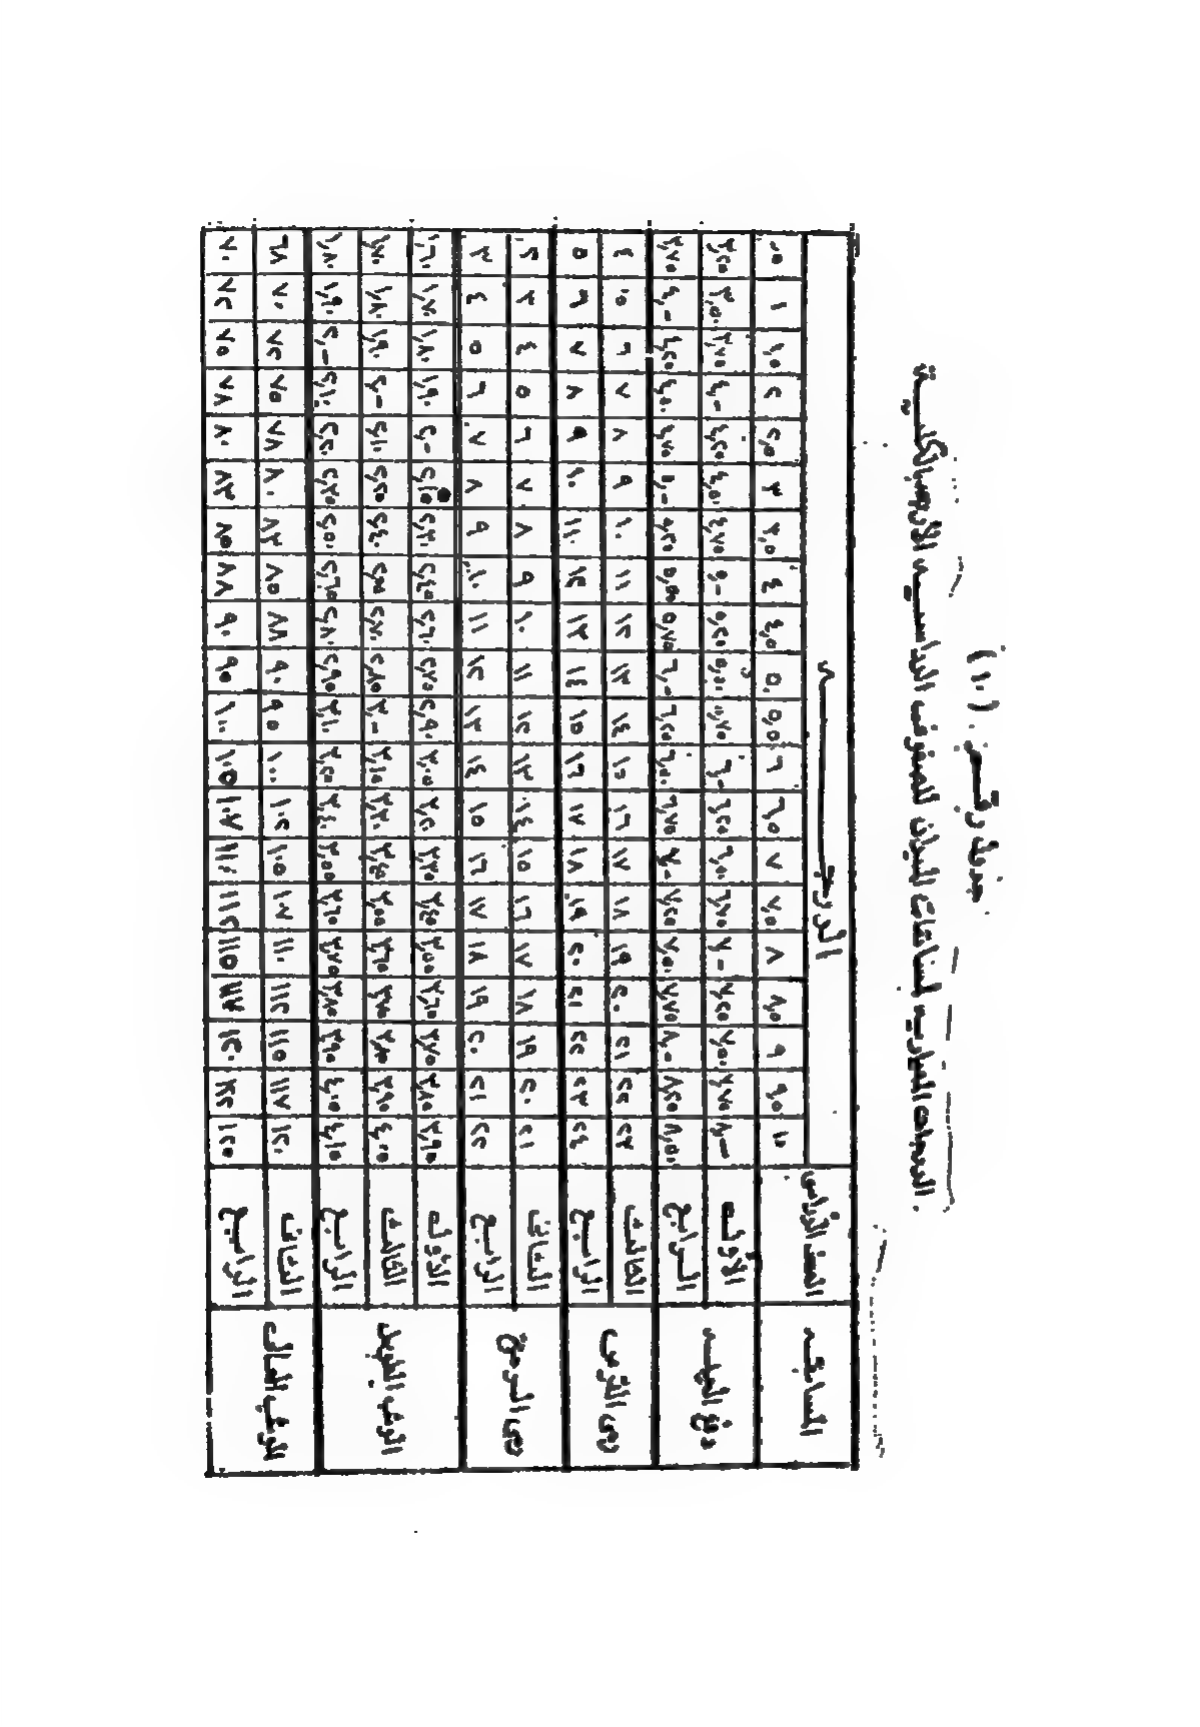 جدول رقم (١٠)
الدرجه المعياريه لمسابقات الميدان للصفوف الدراسيه الأربعه بالكليـة
المسابقه الصف الدراسى الدرجه
١٠ ٩,٥ ٩ ٨,٥ ٨ ٧,٥ ٧ ٦,٥ ٦ ٥,٥ ٥,٠ ٤,٥ ٤ ٣,٥ ٣ ٢,٥ ٢ ١,٥ ١ ,٥
دفع الجله الأولى ٨,- ٧,٧٥ ٧,٥٠ ٧,٢٥ ٧,- ٦,٧٥ ٦,٥٠ ٦,٢٥ ٦,- ٥,٧٥ ٥,٥٠ ٥,٢٥ ٥,- ٤,٧٥ ٤,٥٠ ٤,٢٥ ٤,- ٣,٧٥ ٣,٥٠ ٣,٢٥
الرابع ٨,٥٠ ٨,٢٥ ٨,- ٧,٧٥ ٧,٥٠ ٧,٢٥ ٧,- ٦,٧٥ ٦,٥٠ ٦,٢٥ ٦,- ٥,٧٥ ٥,٥٠ ٥,٢٥ ٥,- ٤,٧٥ ٤,٥٠ ٤,٢٥ ٤,- ٣,٧٥
رمى القرص الثالث ٢٣ ٢٢ ٢١ ٢٠ ١٩ ١٨ ١٧ ١٦ ١٥ ١٤ ١٣ ١٢ ١١ ١٠ ٩ ٨ ٧ ٦ ٥ ٤
الرابع ٢٤ ٢٣ ٢٢ ٢١ ٢٠ ١٩ ١٨ ١٧ ١٦ ١٥ ١٤ ١٣ ١٢ ١١ ١٠ ٩ ٨ ٧ ٦ ٥
رمى الرمح الثالث ٢١ ٢٠ ١٩ ١٨ ١٧ ١٦ ١٥ ١٤ ١٣ ١٢ ١١ ١٠ ٩ ٨ ٧ ٦ ٥ ٤ ٣ ٢
الرابع ٢٢ ٢١ ٢٠ ١٩ ١٨ ١٧ ١٦ ١٥ ١٤ ١٣ ١٢ ١١ ١٠ ٩ ٨ ٧ ٦ ٥ ٤ ٣
الوثب الطويل الأولى ٣,٩٥ ٣,٨٥ ٣,٧٥ ٣,٦٥ ٣,٥٥ ٣,٤٥ ٣,٣٥ ٣,٢٠ ٣,٠٥ ٢,٩٠ ٢,٧٥ ٢,٦٠ ٢,٤٥ ٢,٣٠ ٢,١٥ ٢,- ١,٩٠ ١,٨٠ ١,٧٠ ١,٦٠
الثالث ٤,٠٥ ٣,٩٥ ٣,٨٥ ٣,٧٥ ٣,٦٥ ٣,٥٥ ٣,٤٥ ٣,٣٠ ٣,١٥ ٣,- ٢,٨٥ ٢,٧٠ ٢,٥٥ ٢,٤٠ ٢,٢٥ ٢,١٠ ٢,- ١,٩٠ ١,٨٠ ١,٧٠
الرابع ٤,١٥ ٤,٠٥ ٣,٩٥ ٣,٨٥ ٣,٧٥ ٣,٦٥ ٣,٥٥ ٣,٤٠ ٣,٢٥ ٣,١٠ ٢,٩٥ ٢,٨٠ ٢,٦٥ ٢,٥٠ ٢,٣٥ ٢,٢٠ ٢,١٠ ٢,- ١,٩٠ ١,٨٠
الوثب العالى الثالث ١٢٠ ١١٧ ١١٥ ١١٢ ١١٠ ١٠٨ ١٠٥ ١٠٢ ١٠٠ ٩٥ ٩٠ ٨٨ ٨٥ ٨٣ ٨٠ ٧٨ ٧٥ ٧٢ ٧٠ ٦٨
الرابع ١٢٥ ١٢٢ ١٢٠ ١١٧ ١١٥ ١١٢ ١١٠ ١٠٨ ١٠٥ ١٠٠ ٩٥ ٩٠ ٨٨ ٨٥ ٨٣ ٨٠ ٧٨ ٧٥ ٧٢ ٧٠